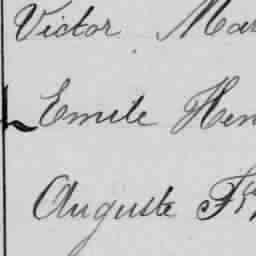 Victor Mar
Emile Hen
Auguste Fr